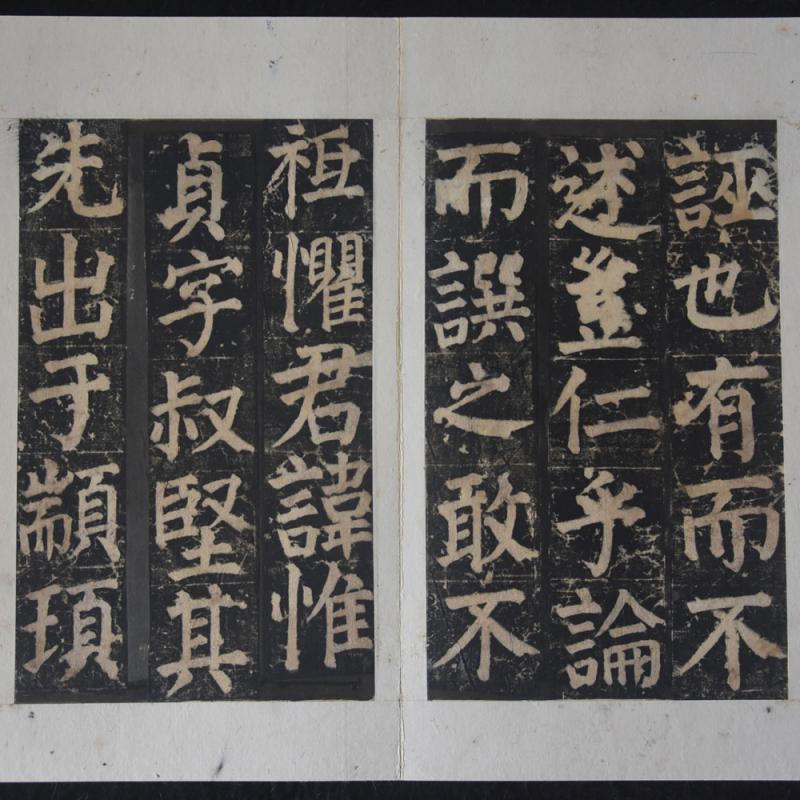 誣也有而不
述豈仁乎論
而譔之敢不
祗懼君諱惟
貞字叔堅其
先出于顓頊